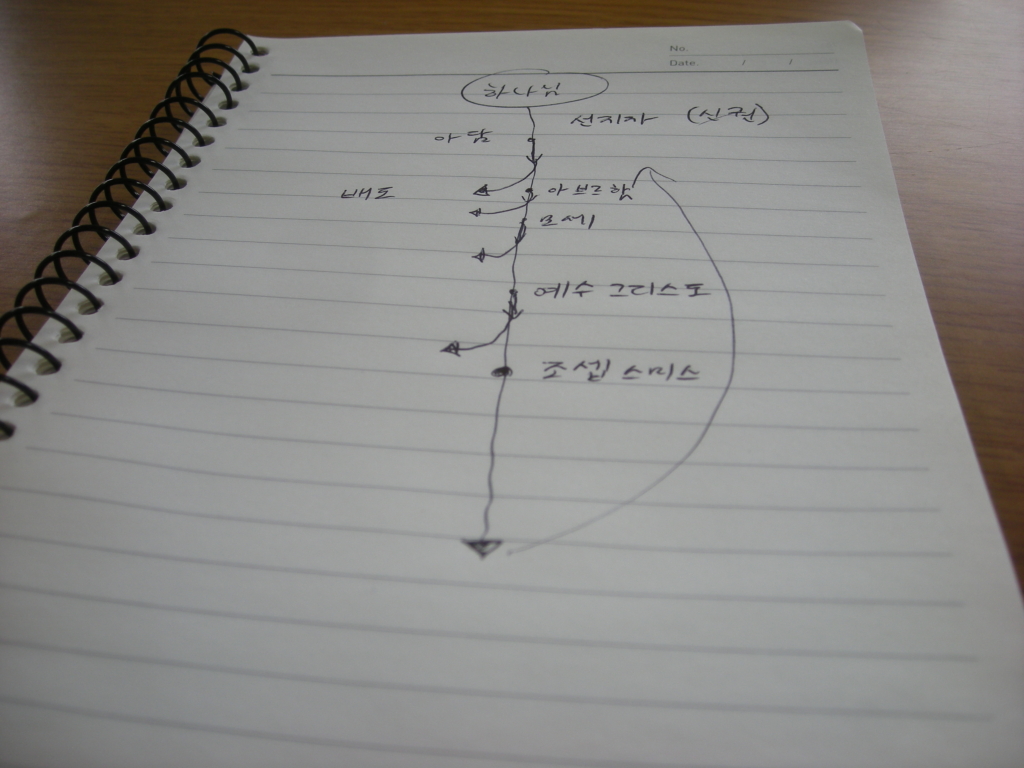 No.
Date. / /
하나님
선지자 (신권)
아담
배도
아브라함
모세
예수 그리스도
조셉 스미스